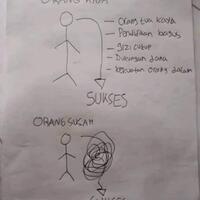 ORANG KAYA
Orang tua kaya
Pendidikan bagus
Gizi cukup
Dukungan dana
Kekuatan orang dalam
SUKSES
ORANG SUSAH
SUKSES